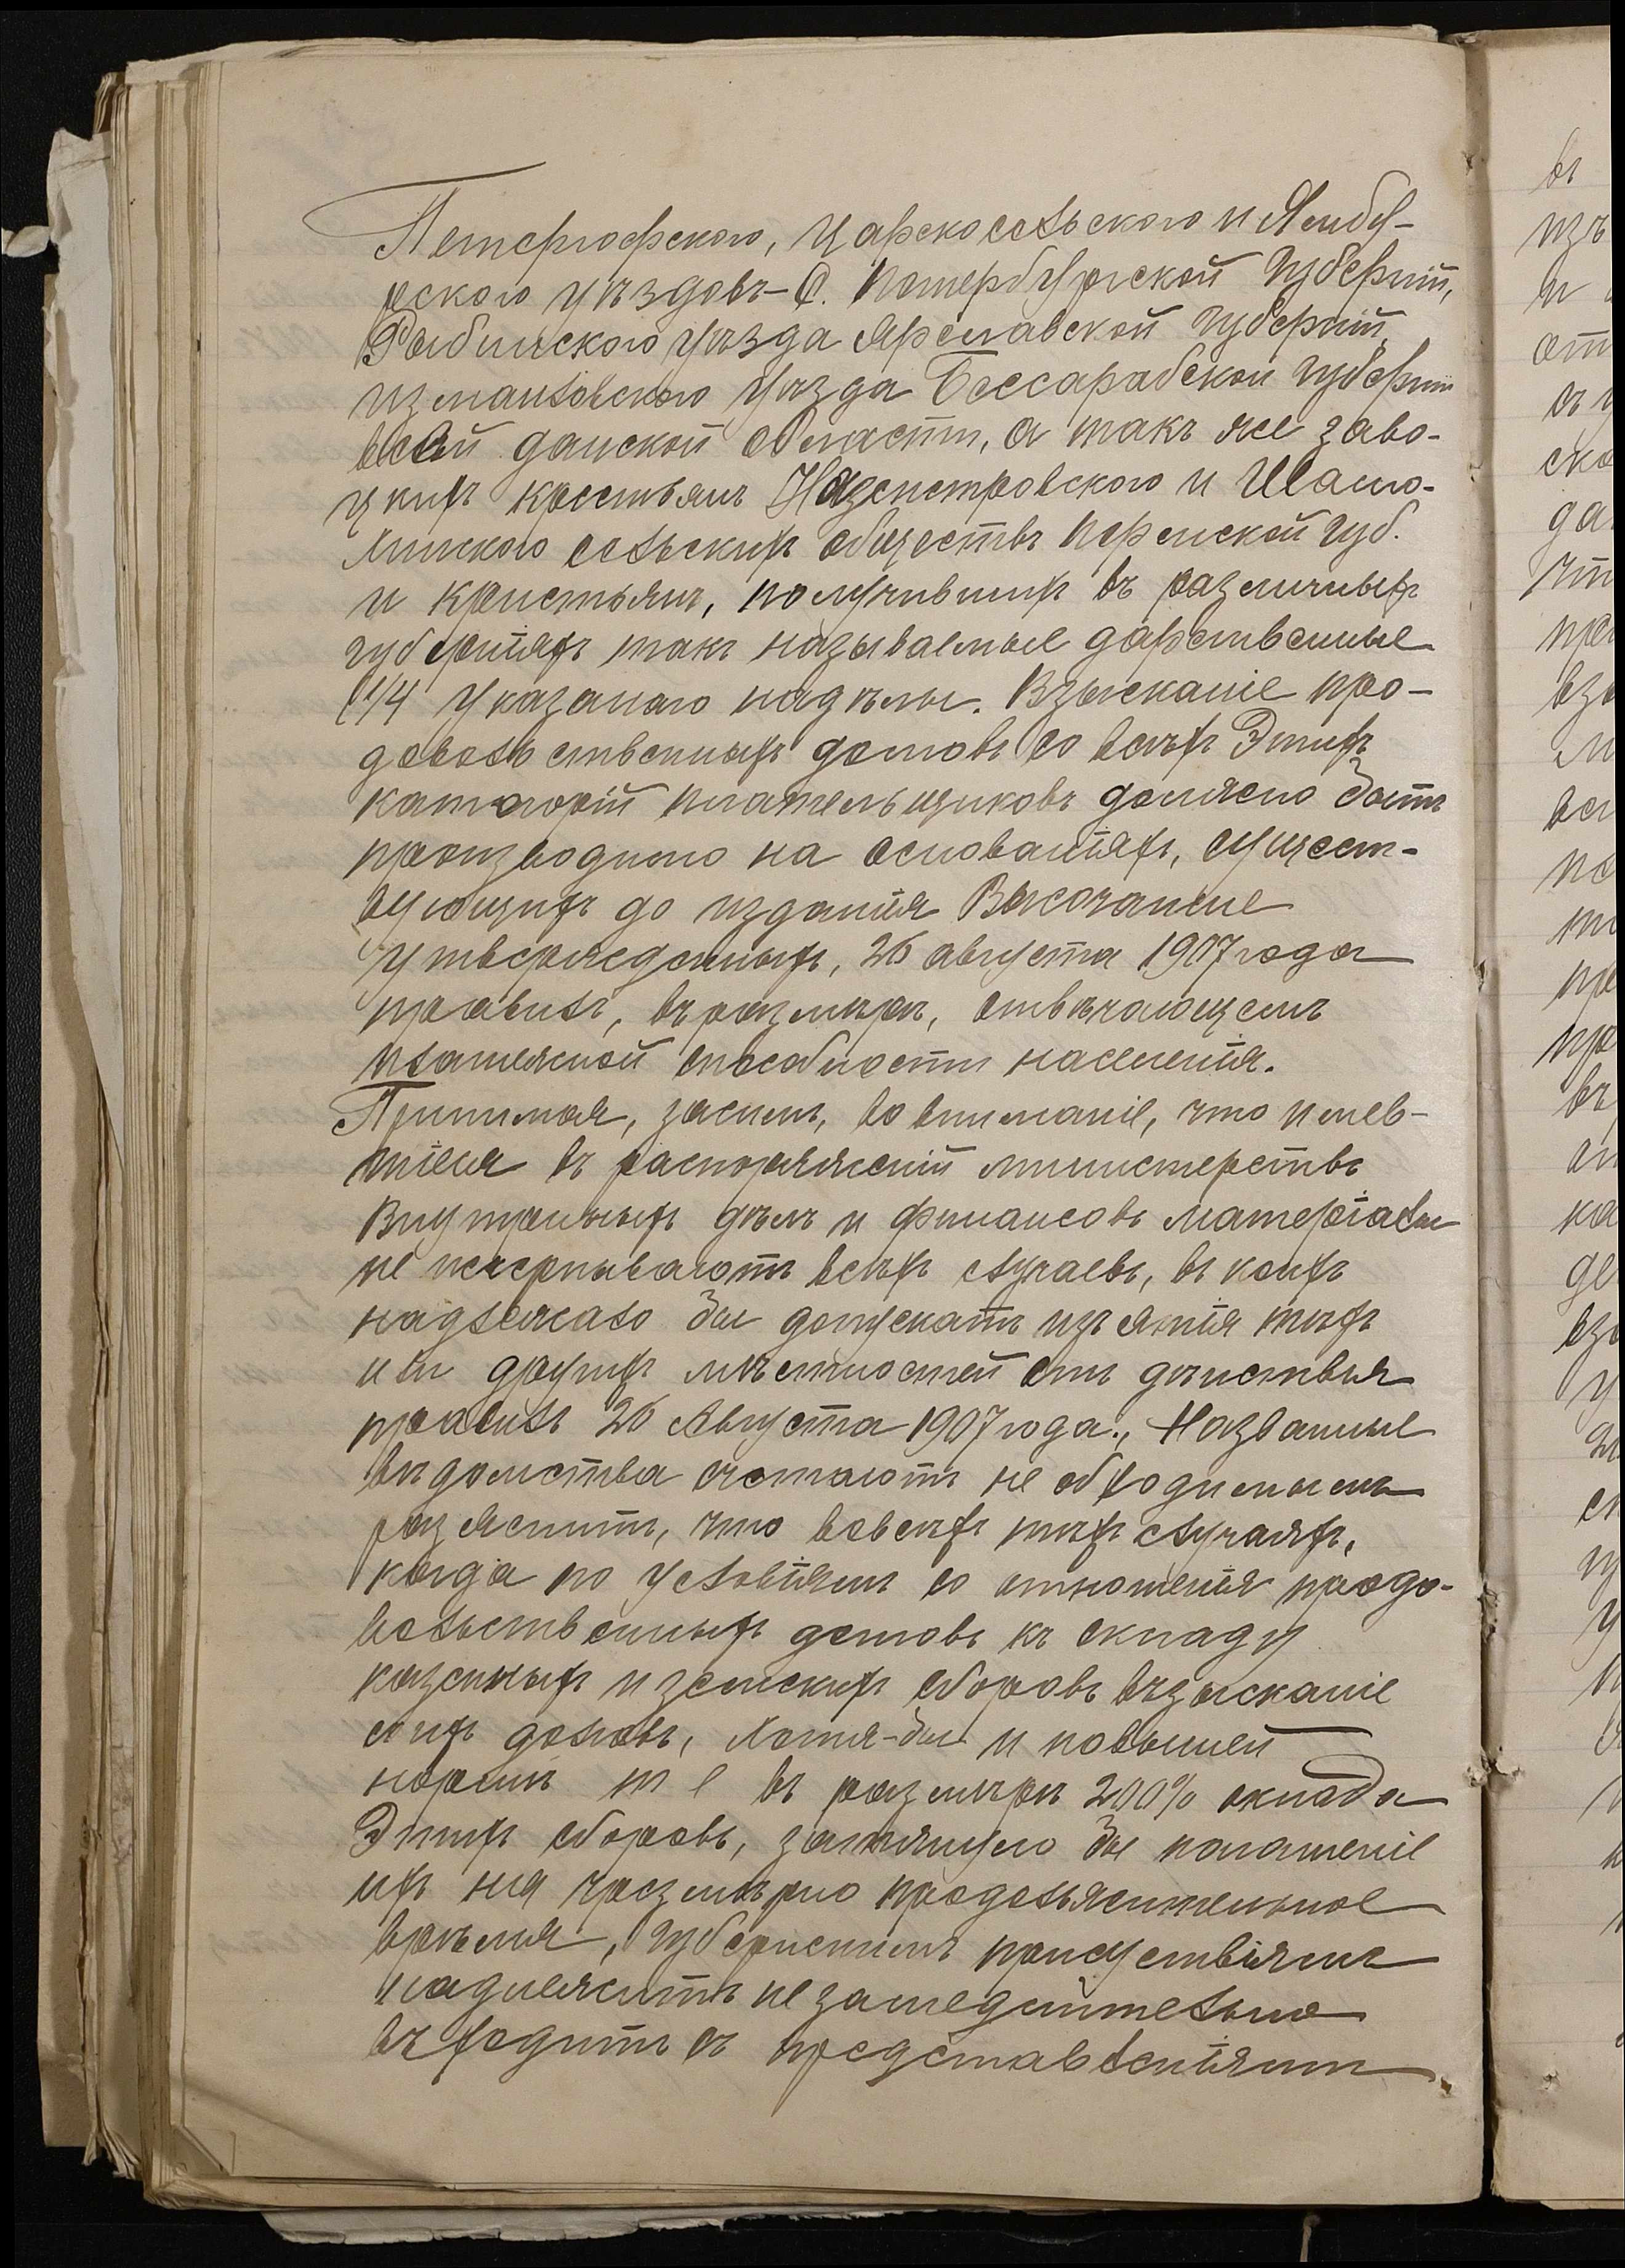 Петергофского, Царскосельского и Ямбу-
ргского уѣздовъ-С. Петербургской губерніи,
Рыбинского уѣзда Ярославской губерніи,
измаильского уѣзда Бессарабской губерніи
всей донской области, а такъ же заво-
цкихъ крестьянъ Назепетровского и Шама-
хинского сельскихъ обществъ пермской губ.
и крестьянъ, получившихъ въ различныхъ
губерніяхъ такъ называемые дарственные
(1/4 указаного надѣлы. Взысканіе про-
довольственныхъ долговъ со всѣхъ Этихъ
категорій плательщиковъ должно быть
производимо на основаніяхъ, сущест-
вующихъ до изданія Высочайше
утвержденныхъ, 26 августа 1907 года
правилъ, въ размѣрѣ, отвѣчающемъ
платежной способности населенія.
Принимая, засимъ, во вниманіе, что имев-
шіеся въ распоряженіи министерствъ
Внутреныхъ дѣлъ и финансовъ матеріалы
не исчерпываютъ всѣхъ случаевъ, въ коихъ
надлежало бы допускать изъятія тѣхъ
или другихъ мѣстностей отъ дѣйствья
правилъ 26 Августа 1907 года., Названные
вѣдомства считаютъ не обходимымъ
разяснить, что вовсѣхъ тѣхъ случаяхъ,
когда по условіямъ со отношенія продо-
вольственныхъ долговъ къ окладу
казеныхъ и земскихъ сборовъ взысканіе
сихъ долговъ, Хотя-бы и повышей
нормѣ т е въ размѣрѣ 200% оклада
Этихъ сборовъ, затянуло бы погашеніе
ихъ на чрезмѣрно продолжительное
время, губернскимъ присуствіямъ
надлежитъ незамедлительно
въходить съ представленіями